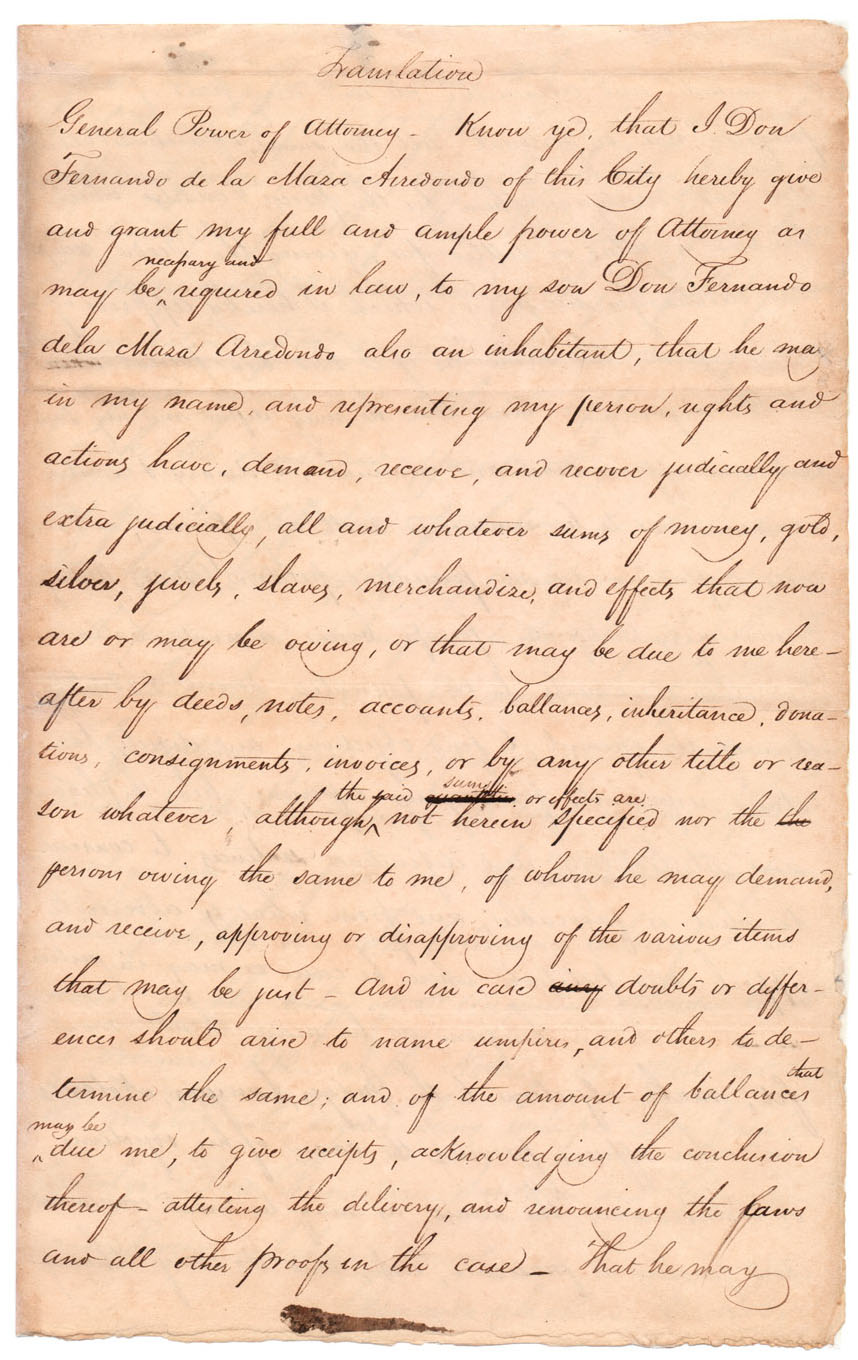 Translation
General Power of Attorney - Know ye, that I Don
Fernando de la Maza Arredondo of this City hereby give
and grant my full and ample power of Attorney as
necessary and
may be ^ required in law, to my son Don Fernando
dela Maza Arredondo also an inhabitant, that he may
in my name, and representing my person, rights and
actions have, demand, receive, and recover judicially and
extra judicially, all and whatever sums of money, gold,
silver, jewels, slaves, merchandize, and effects that now
are or may be owing, or that may be due to me here-
after by deeds, notes, accounts, ballances, inheritance, dona-
tions, consignments, invoices, or by any other title or rea-
sums
the said quantities or effects are
son whatever, although ^ not herein specified nor the the
persons owing the same to me, of whom he may demand,
and receive, approving or disapproving of the various items
that may be just - And in case any doubts or differ-
ences should arise to name umpires, and others to de-
termine the same; and of the amount of ballances that
may be
^ due me, to give receipts, acknowledging the conclusion
thereof - attesting the delivery, and renouncing the laws
and all other proofs in the case - That he may